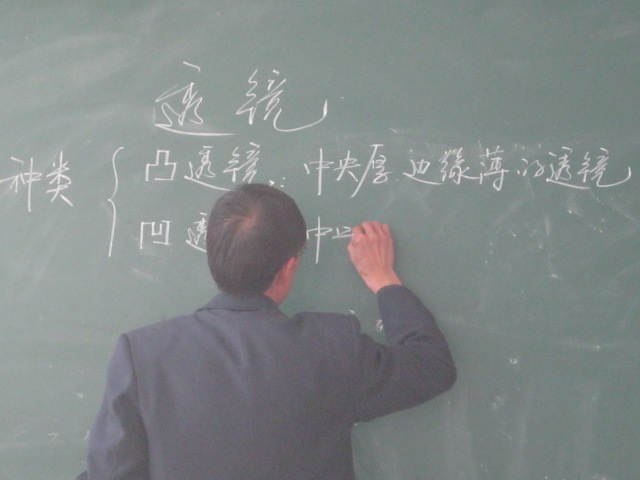 透镜
种类 { 凸透镜：中央厚边缘薄的透镜
凹透 中